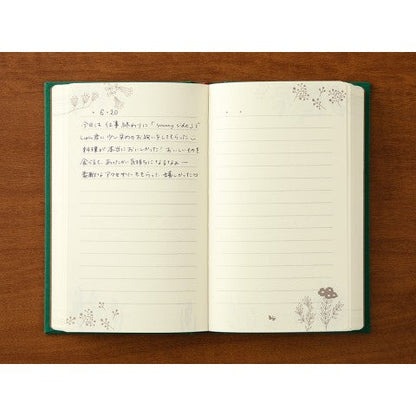 ・6・20
今日は仕事終わりに「sunny side」で
しゅん君に少し早めのお祝いをしてもらった
料理が本当においしかった! おいしいものを
食べると、あったかい気持ちになるなぁー
素敵なアクセサリーももらった 嬉しかった